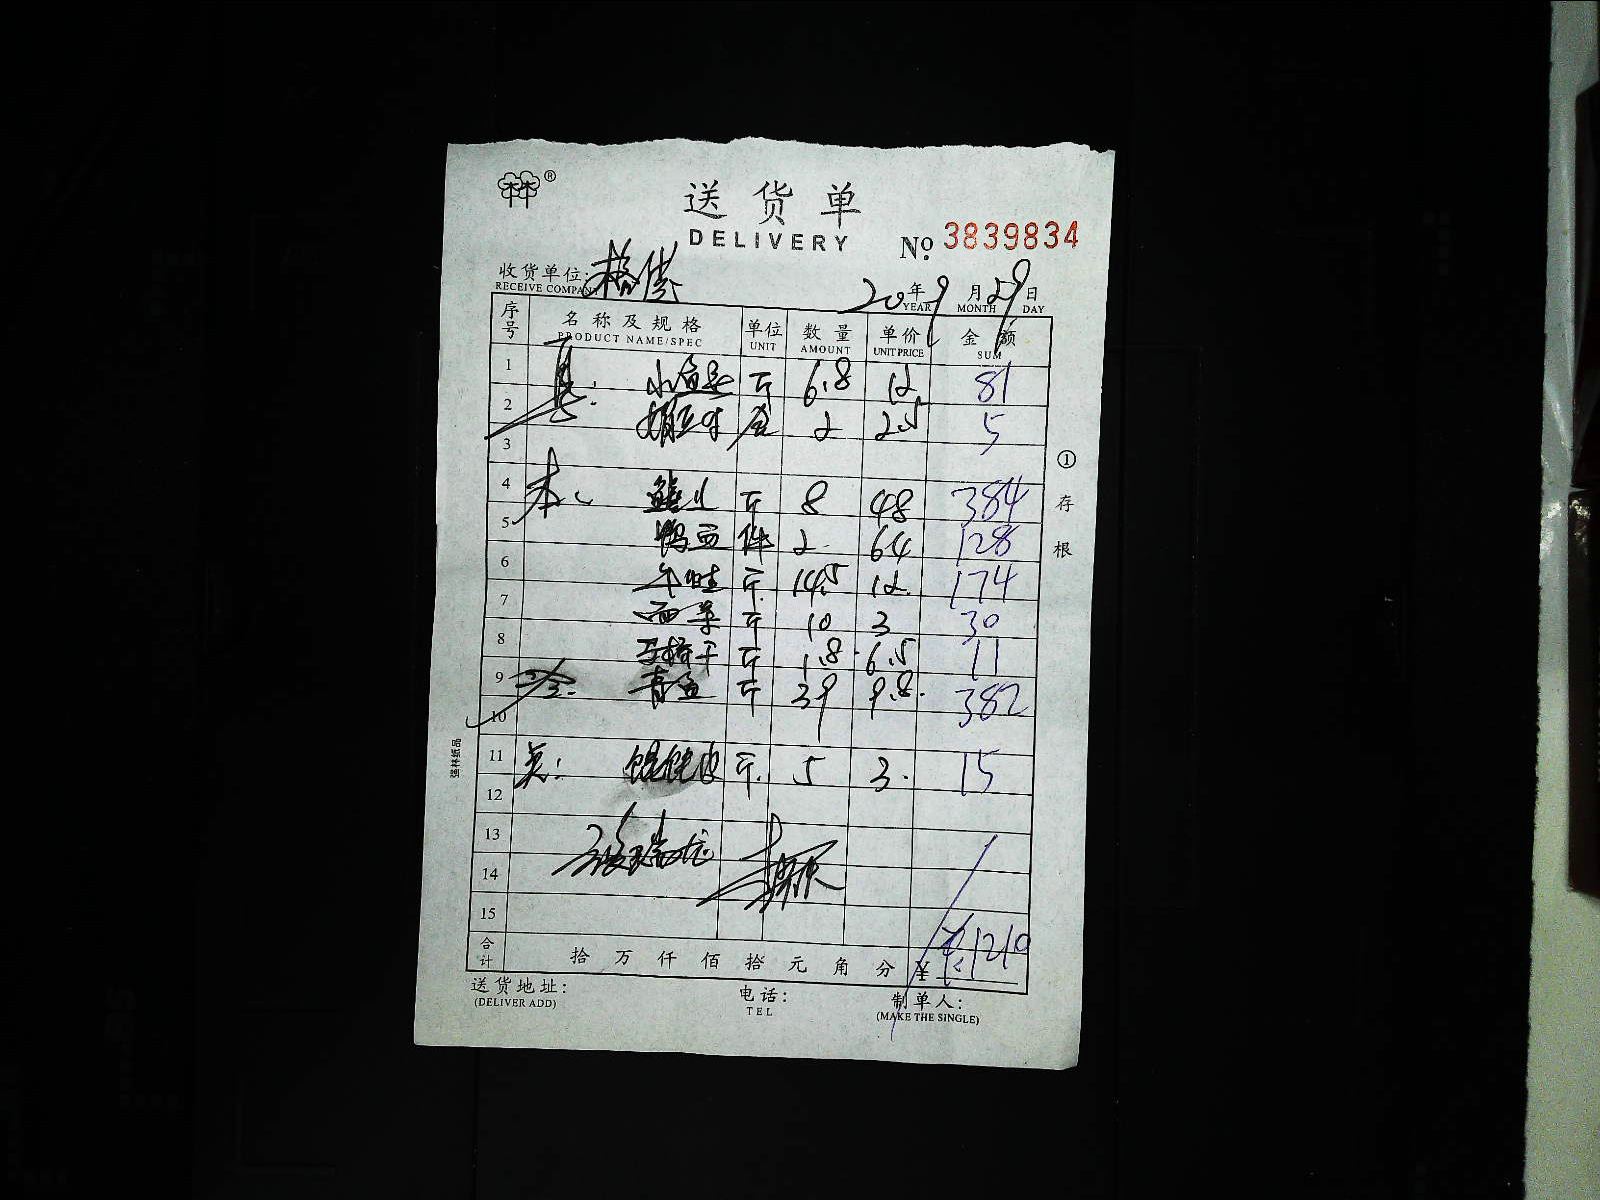 送货单
DELIVERY
№ 3839834
收货单位:
RECEIVE COMPANY
20 年 9 月 29 日
YEAR MONTH DAY
序号 名称及规格 单位 数量 单价 金额
PRODUCT NAME/SPEC UNIT AMOUNT UNIT PRICE SUM
1 斤 6.8 12 81
2 2 2.5 5
3
4 斤 8 48 384
5 件 2 64 128
6 斤 14.5 12 174
7 斤 10 3 30
8 斤 1.8 6.5 11
9 青鱼 斤 39 9.8 382
10
11 馄饨皮 斤 5 3 15
12
13
14
15
合计 拾 万 仟 佰 拾 元 角 分 ¥ 1210
① 存根
送货地址:
(DELIVER ADD)
电话:
TEL
制单人:
(MAKE THE SINGLE)